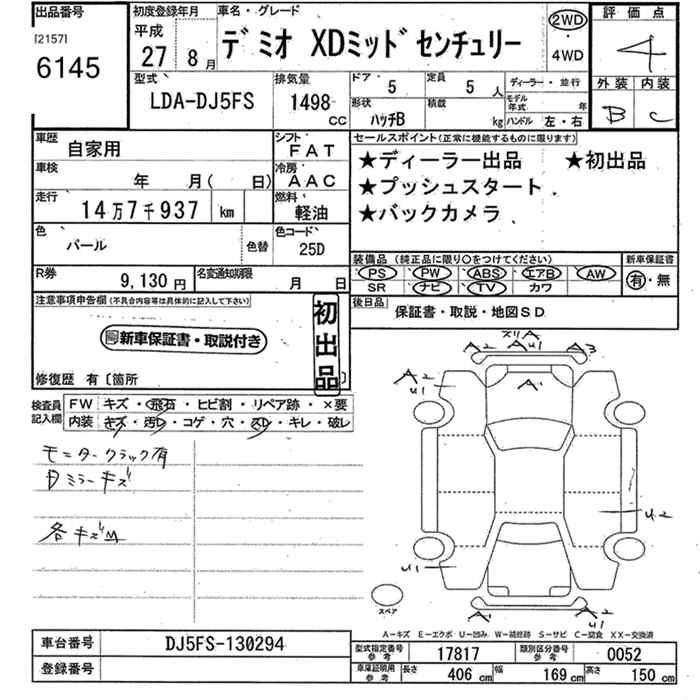 出品番号
[2157]
6145
初度登録年月
平成
27年 8月
車名・グレード
デミオ XDミッドセンチュリー
2WD
・
4WD
評価点
4
外装 内装
B C
型式
LDA-DJ5FS
排気量
1498 cc
ドア・ 5
定員 5人
ディーラー・並行
形状 ハッチB
積載 kg
モデル年式 年
ハンドル 左・右
車歴
自家用
シフト FAT
車検
年 月( 日)
冷房 AAC
走行
14万7千937 km
燃料
軽油
色
パール
色替
色コード
25D
R券 9,130円
名変通知期限 月 日
セールスポイント(正常に機能するものに限ります)
★ディーラー出品 ★初出品
★プッシュスタート
★バックカメラ
装備品(純正品に限り○をつけてください)
PS PW ABS エアB AW
SR ナビ TV カワ
新車保証書
有・無
後日品
保証書・取説・地図SD
注意事項申告欄(不具合内容等は具体的に記入して下さい)
新車保証書・取説付き
初出品
修復歴 有〔箇所 〕
検査員記入欄
FW キズ・飛石・ヒビ割・リペア跡・×要
内装 キズ・汚レ・コゲ・穴・スレ・キレ・破レ
モニタークラック有
Dミラーキズ
各キズ凹
スリA
A2 A U1 A3
A2
U1
A'
U2
U1
A1 A' A2
U1
スペア
A－キズ E－エクボ U－凹み W－補修跡 S－サビ C－腐食 XX－交換済
車台番号 DJ5FS-130294
登録番号
型式指定番号参考 17817
類別区分番号参考 0052
車庫証明用参考
長さ 406 cm
幅 169 cm
高さ 150 cm